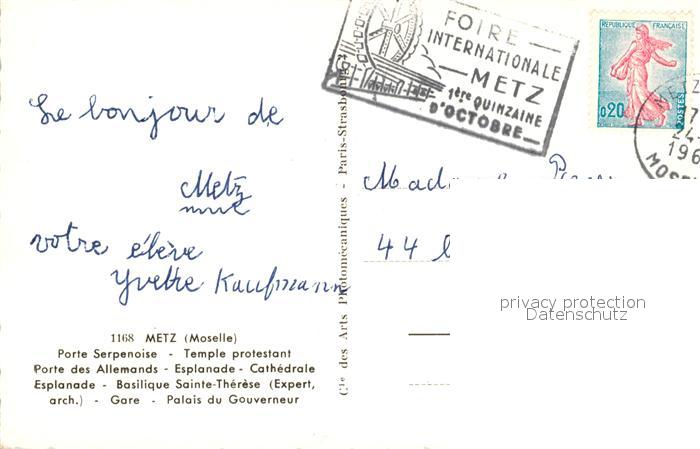 FOIRE
INTERNATIONALE
METZ
1ère QUINZAINE
D'OCTOBRE
REPUBLIQUE FRANÇAISE
0,20
POSTES
METZ
24-
196
MOSE
Le bonjour de
Metz
votre élève
Yvette Kaufmann
1168 METZ (Moselle)
Porte Serpenoise - Temple protestant
Porte des Allemands - Esplanade - Cathédrale
Esplanade - Basilique Sainte-Thérèse (Expert,
arch.) - Gare - Palais du Gouverneur
Cie des Arts Photomécaniques - Paris-Strasbourg
44
privacy protection
Datenschutz